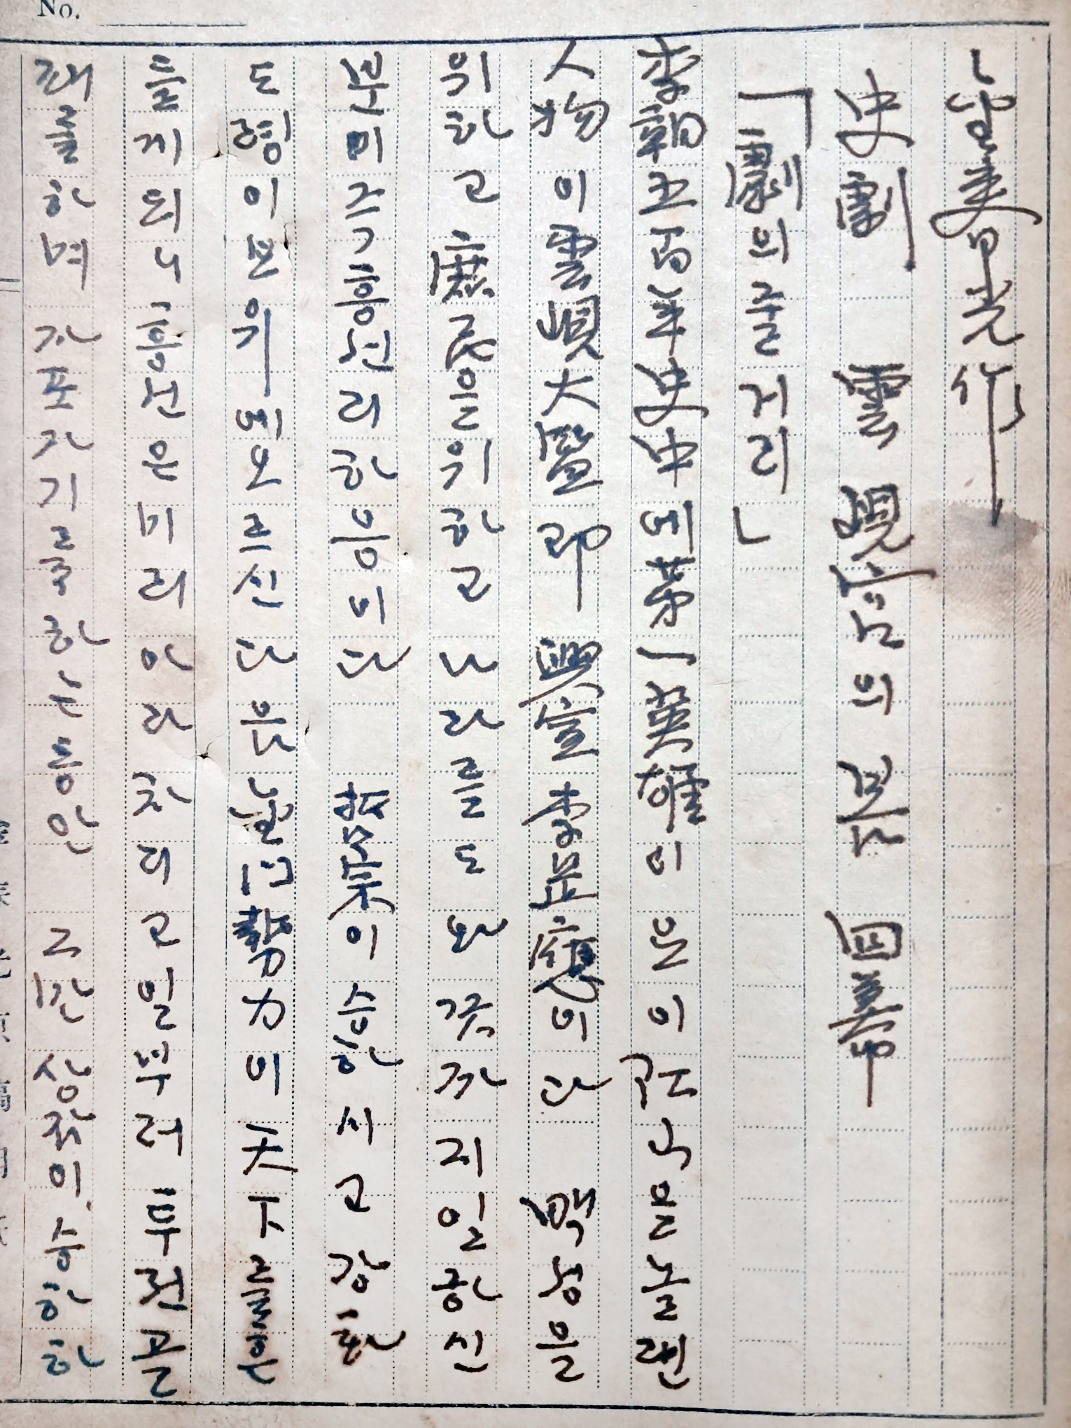 No.
光作
史劇 雲峴宮의 봄 四幕
「劇의줄거리」
李朝五百年史中에第一英雄이믄이요
人物이雲峴大監即 興宣李昰應이라 백성을
위하고 庶民을위하고 나라를도와 끗까지일하신
분미그기흥선리하응미다 哲宗이승하시고강화
도령이보위에오르신다믄 金門勢力이天下를흔
들게되니흥선은미리아라차리고일부러투전골
패를하며 자포자기를하는동안 그만상감이승하하